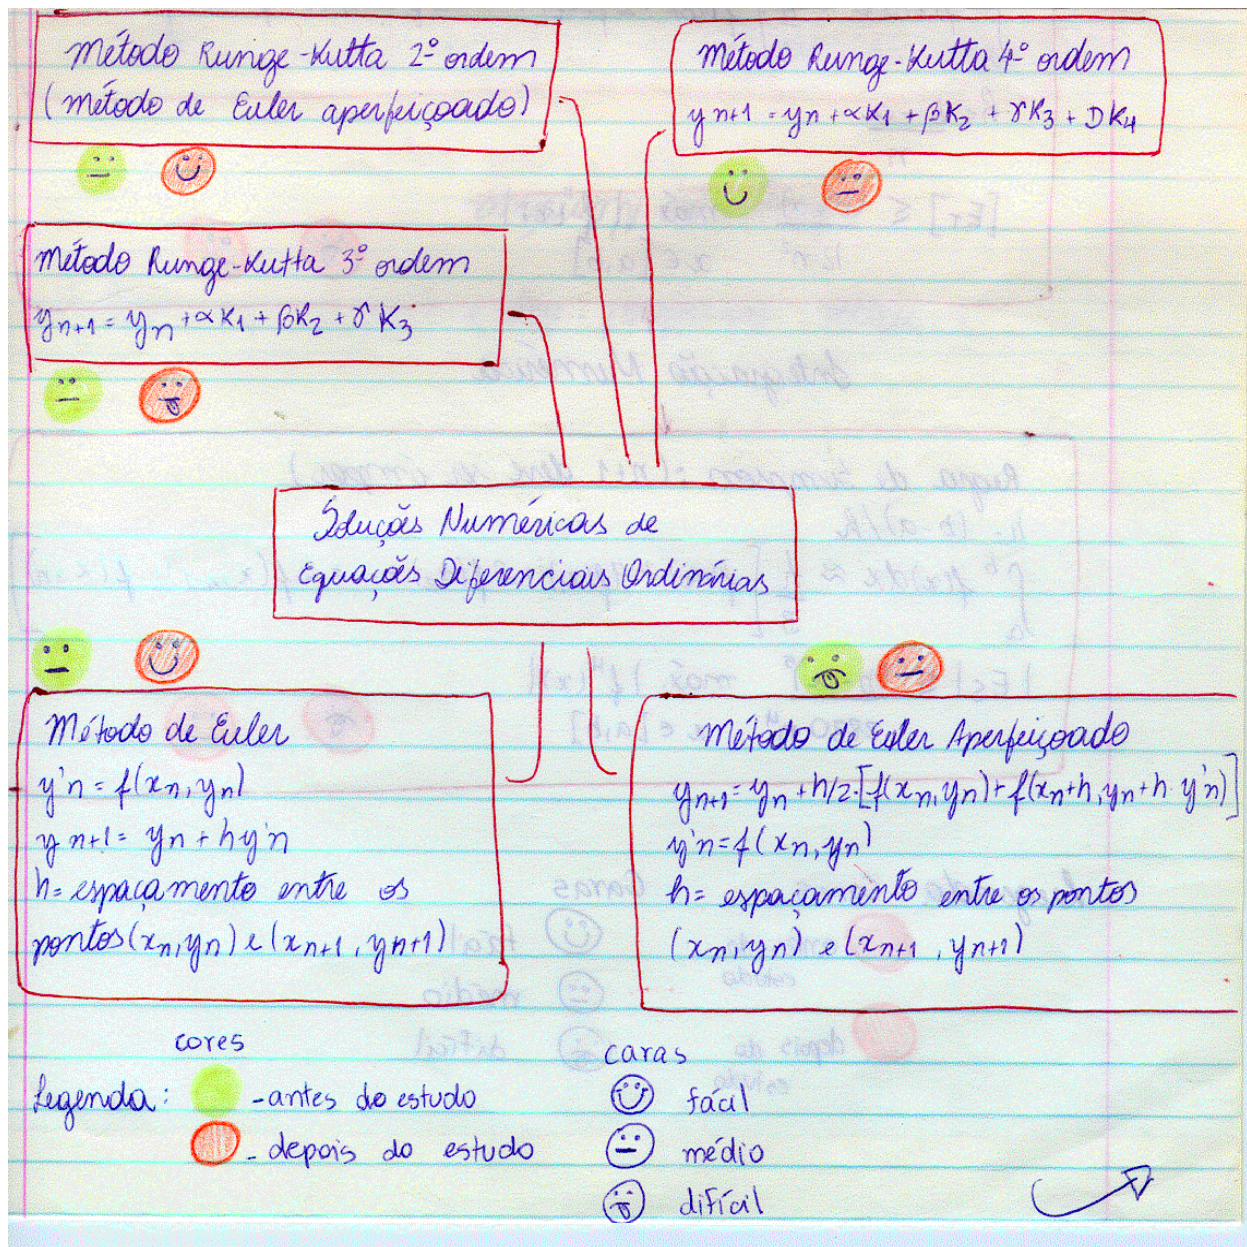 Método Runge-Kutta 2º ordem
(método de Euler aperfeiçoado)
Método Runge-Kutta 4º ordem
yn+1 = yn + αK1 + βK2 + γK3 + DK4
Método Runge-Kutta 3º ordem
yn+1 = yn + αK1 + βK2 + γK3
Soluções Numéricas de
Equações Diferenciais Ordinárias
Método de Euler
y'n = f(xn, yn)
yn+1 = yn + hy'n
h = espaçamento entre os
pontos (xn, yn) e (xn+1, yn+1)
Método de Euler Aperfeiçoado
yn+1 = yn + h/2·[f(xn, yn) + f(xn+h, yn+h·y'n)]
y'n = f(xn, yn)
h = espaçamento entre os pontos
(xn, yn) e (xn+1, yn+1)
cores
Legenda:
- antes do estudo
- depois do estudo
caras
fácil
médio
difícil